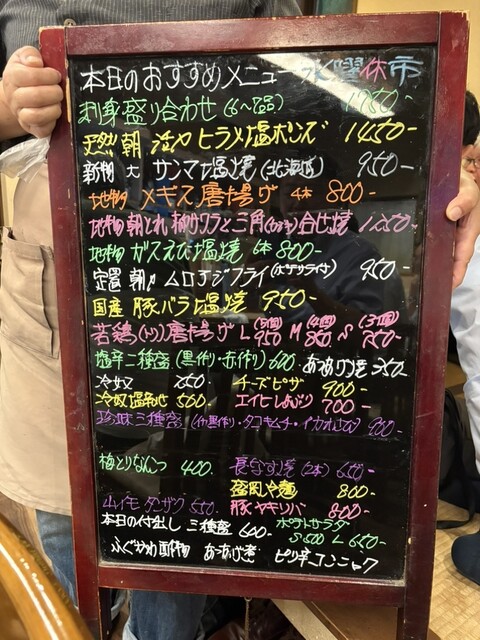 本日のおすすめメニュー 水曜休市
刺身盛り合わせ(6〜7品) 1950-
天然 朝〆 活〆ヒラメ塩ポンズ 1450-
新物 大 サンマ塩焼(北海道) 950-
地物 メギス唐揚げ 4本 800-
地物朝どれ 柳サワラと三角(カジキ)合せ焼 1250-
地物 ガスえび塩焼 6本 800-
定置 朝〆 ムロアジフライ(ポテサラ付) 950-
国産 豚バラ塩焼 950-
若鶏(トリ)唐揚げ L(5個)950 M(4個)850 S(3個)750
塩辛二種盛(黒作り・赤作り) 600- あつあげ焼 350-
冷奴 350- チーズピザ 900-
冷奴塩辛地 500- エイヒレあぶり 700-
珍味三種盛(イカ黒作り・タコキムチ・イカ) 900-
梅とりなんこつ 400. 長なす焼(2本) 650-
盛岡冷麺 800-
山イモタンザク 550- 豚ヤキソバ 800-
本日の付出し 三種盛 600- ポテトサラダ
S500 L650-
ふぐかわ酢物 あつあげ煮 ピリ辛コンニャク